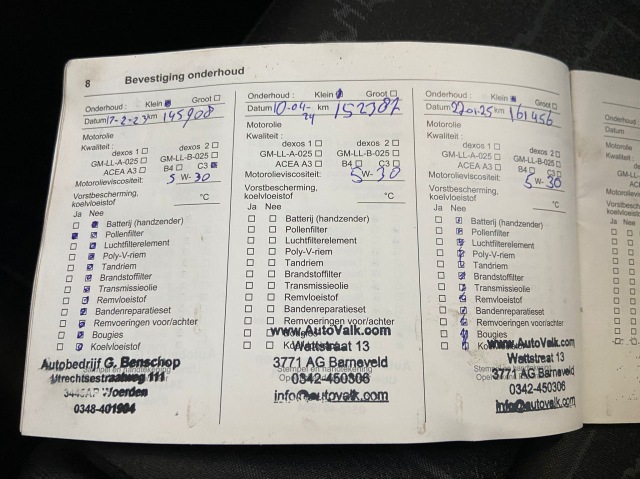 8 Bevestiging onderhoud
Onderhoud : Klein Groot
Datum 17-2-23 km 145908
Motorolie
Kwaliteit :
dexos 1 dexos 2
GM-LL-A-025 GM-LL-B-025
ACEA A3 B4 C3
Motorolieviscositeit: 5 W- 30
Vorstbescherming,
koelvloeistof °C
Ja Nee
Batterij (handzender)
Pollenfilter
Luchtfilterelement
Poly-V-riem
Tandriem
Brandstoffilter
Transmissieolie
Remvloeistof
Bandenreparatieset
Remvoeringen voor/achter
Bougies
Koelvloeistof
Autobedrijf G. Benschop
Utrechtsestraatweg 111
Woerden
0348-401904
Onderhoud : Klein Groot
Datum 10-04-24 km 152387
Motorolie
Kwaliteit :
dexos 1 dexos 2
GM-LL-A-025 GM-LL-B-025
ACEA A3 B4 C3
Motorolieviscositeit: 5 W- 30
Vorstbescherming,
koelvloeistof °C
Ja Nee
Batterij (handzender)
Pollenfilter
Luchtfilterelement
Poly-V-riem
Tandriem
Brandstoffilter
Transmissieolie
Remvloeistof
Bandenreparatieset
Remvoeringen voor/achter
www.AutoValk.com
Wattstraat 13
3771 AG Barneveld
0342-450306
info@autovalk.com
Onderhoud : Klein Groot
Datum 22-01-25 km 161456
Motorolie
Kwaliteit :
dexos 1 dexos 2
GM-LL-A-025 GM-LL-B-025
ACEA A3 B4 C3
Motorolieviscositeit: 5 W- 30
Vorstbescherming,
koelvloeistof °C
Ja Nee
Batterij (handzender)
Pollenfilter
Luchtfilterelement
Poly-V-riem
Tandriem
Brandstoffilter
Transmissieolie
Remvloeistof
Bandenreparatieset
Remvoeringen voor/achter
Bougies
www.AutoValk.com
Wattstraat 13
3771 AG Barneveld
0342-450306
info@autovalk.com
Datum
Motorolie
Ja Nee